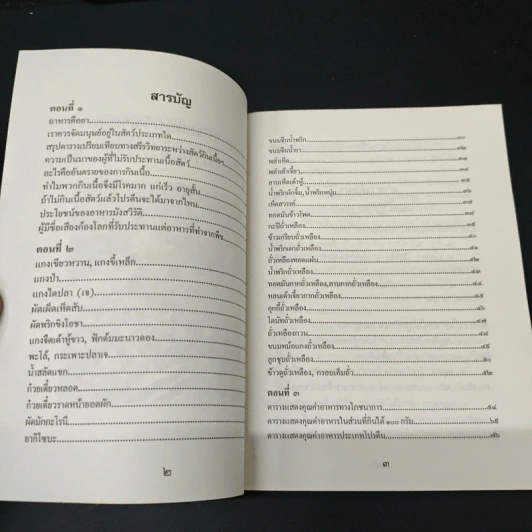 สารบัญ
ตอนที่ ๑
อาหารคือยา
เราควรจัดมนุษย์อยู่ในสัตว์ประเภทใด
สรุปตารางเปรียบเทียบทางสรีรวิทยาระหว่างสัตว์กินเนื้อฯ
ความเป็นมาของผู้ที่ไม่รับประทานเนื้อสัตว์
อะไรคืออันตรายของการกินเนื้อ
ทำไมพวกกินเนื้อจึงมีโรคมาก แก่เร็ว อายุสั้น
ถ้าไม่กินเนื้อสัตว์แล้วโปรตีนจะได้มาจากไหน
ประโยชน์ของอาหารมังสวิรัติ
ผู้มีชื่อเสียงก้องโลกที่รับประทานแต่อาหารที่ทำจากพืช
ตอนที่ ๒
แกงเขียวหวาน, แกงขี้เหล็ก
แกงป่า
แกงไตปลา (เจ)
ผัดเผ็ดเห็ดสับ
ผัดพริกขิงโอชา
แกงจืดเต้าหู้ขาว, ฟักต้มมะนาวดอง
พะโล้, กระเพาะปลาเจ
น้ำสลัดแขก
ก๋วยเตี๋ยวหลอด
ก๋วยเตี๋ยวราดหน้ายอดผัก
ผัดมักกะโรนี
ยากิโซบะ
๒
ขนมจีนน้ำพริก
ขนมจีนน้ำยา
พล่าเห็ด
พล่าเต้าเจี้ยว
ลาบเห็ดเต้าหู้ ๓๕
น้ำพริกผักจิ้ม, น้ำพริกหนุ่ม
เห็ดสวรรค์
ทอดมันข้าวโพด
กะปิถั่วเหลือง
ข้าวเกรียบถั่วเหลือง
น้ำพริกเผาถั่วเหลือง
ถั่วเหลืองทอดแผ่น
น้ำพริกถั่วเหลือง ๔๓
ทอดมันกากถั่วเหลือง,ลาบกากถั่วเหลือง
หลนเต้าเจี้ยวกากถั่วเหลือง ๔๕
คุกกี้ถั่วเหลือง
โดนัทถั่วเหลือง ๔๗
ถั่วเหลืองกวน ๔๘
ขนมหม้อแกงถั่วเหลือง
ลูกชุบถั่วเหลือง ๕๐
ข้าวตูถั่วเหลือง, กรอบเค็มถั่ว ๕๒
ตอนที่ ๓
ตารางแสดงคุณค่าอาหารทางโภชนาการ ๕๔
ตารางแสดงคุณค่าอาหารในส่วนที่กินได้ ๑๐๐ กรัม ๖๕
ตารางแสดงคุณค่าอาหารประเภทโปรตีน ๗๖
๓